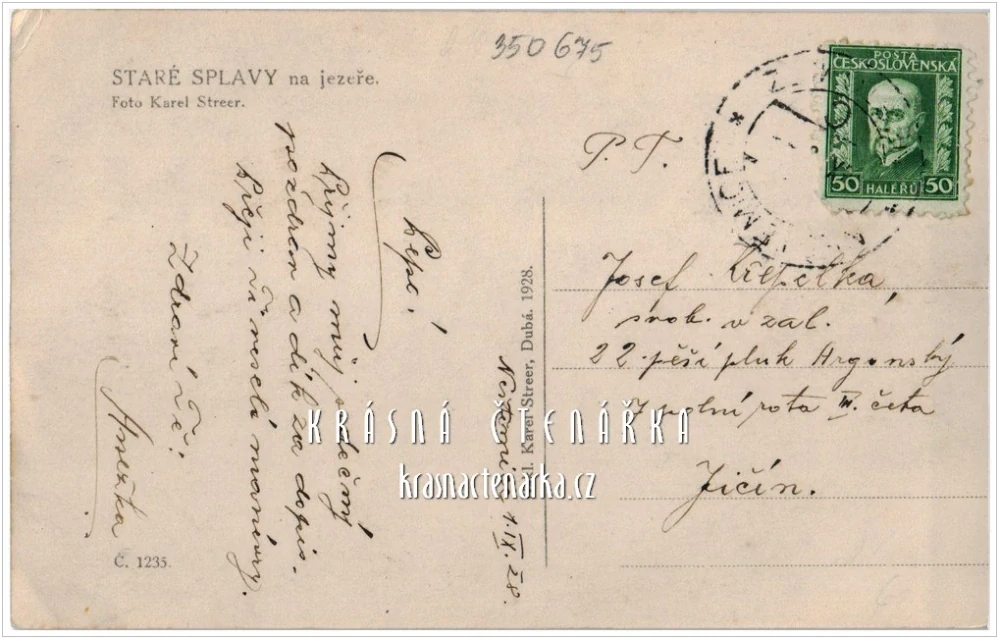 350675
STARÉ SPLAVY na jezeře.
Foto Karel Streer.
Pepo!
Přijmy můj srdečný
pozdrav a dík za dopis.
Přeji Ti veselé manévry.
Zdraví Tě:
Anežka
Č. 1235.
1.IX.28.
Karel Streer, Dubá. 1928.
POŠTA
ČESKOSLOVENSKÁ
50 HALÉŘŮ 50
P. T.
Josef Křepelka,
svob. v zál.
22. pěší pluk Argonský
7 polní rota III. četa
Jičín.
KRÁSNÁ ČTENÁŘKA
krasnactenarka.cz